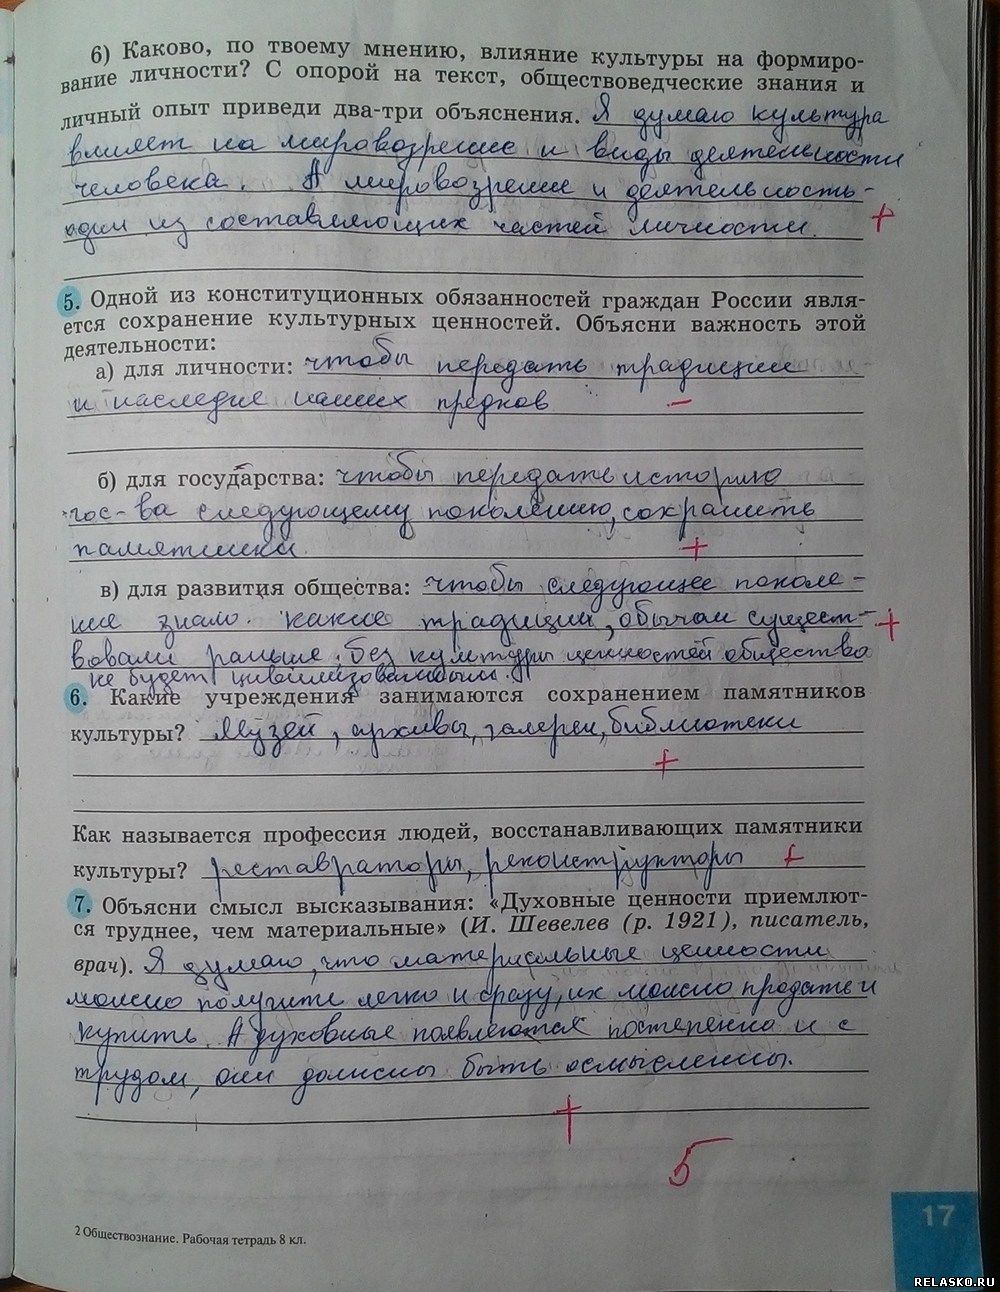 6) Каково, по твоему мнению, влияние культуры на формиро-
вание личности? С опорой на текст, обществоведческие знания и
личный опыт приведи два-три объяснения. Я думаю культура
влияет на мировозрение и виды деятельности
человека. А мировозрение и деятельность-
одни из составляющих частей личности.
+
5. Одной из конституционных обязанностей граждан России явля-
ется сохранение культурных ценностей. Объясни важность этой
деятельности:
а) для личности: чтобы передать традиции
и наследие наших предков
–
б) для государства: чтобы передать историю
гос-ва следующему поколению, сохранить
памятники.
+
в) для развития общества: чтобы следующее поколе-
ние знало какие традиции, обычаи сущест-
вовали раньше. Без культуры ценностей общество
не будет цивилизованным.
+
6. Какие учреждения занимаются сохранением памятников
культуры? Музей, архивы, галереи, библиотеки
+
Как называется профессия людей, восстанавливающих памятники
культуры? реставраторы, реконструкторы +
7. Объясни смысл высказывания: «Духовные ценности приемлют-
ся труднее, чем материальные» (И. Шевелев (р. 1921), писатель,
врач). Я думаю, что материальные ценности
можно получить легко и сразу, их можно продать и
купить. А духовные появляются постепенно и с
трудом, они должны быть осмысленны.
+
5
17
2 Обществознание. Рабочая тетрадь 8 кл.
RELASKO.RU